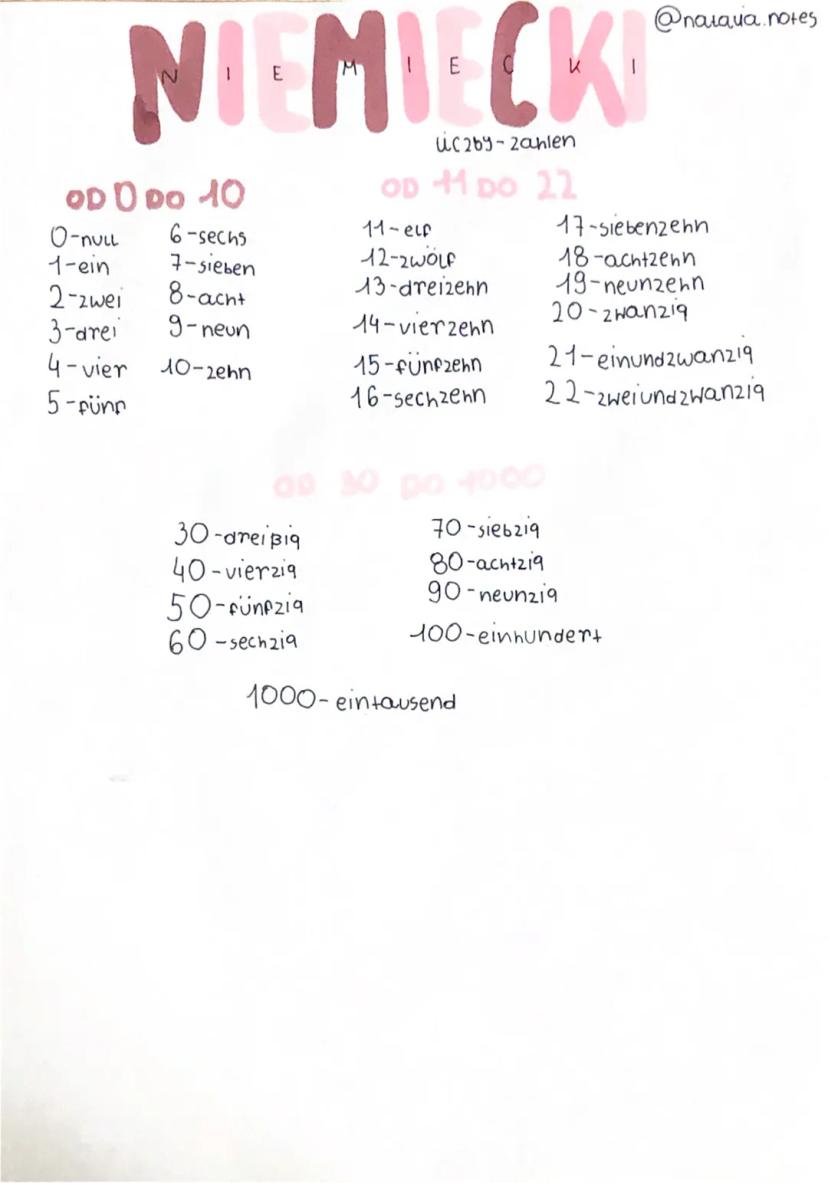 @natalia.notes
NIEMIECKI
N I E M I E C K I
liczby - zahlen
OD 0 DO 10
0-null
1-ein
2-zwei
3-drei
4-vier
5-fünf
6-sechs
7-sieben
8-acht
9-neun
10-zehn
OD 11 DO 22
11-elf
12-zwölf
13-dreizehn
14-vierzehn
15-fünfzehn
16-sechzehn
17-siebenzehn
18-achtzehn
19-neunzehn
20-zwanzig
21-einundzwanzig
22-zweiundzwanzig
OD 30 DO 1000
30-dreißig
40-vierzig
50-fünfzig
60-sechzig
70-siebzig
80-achtzig
90-neunzig
100-einhundert
1000-eintausend